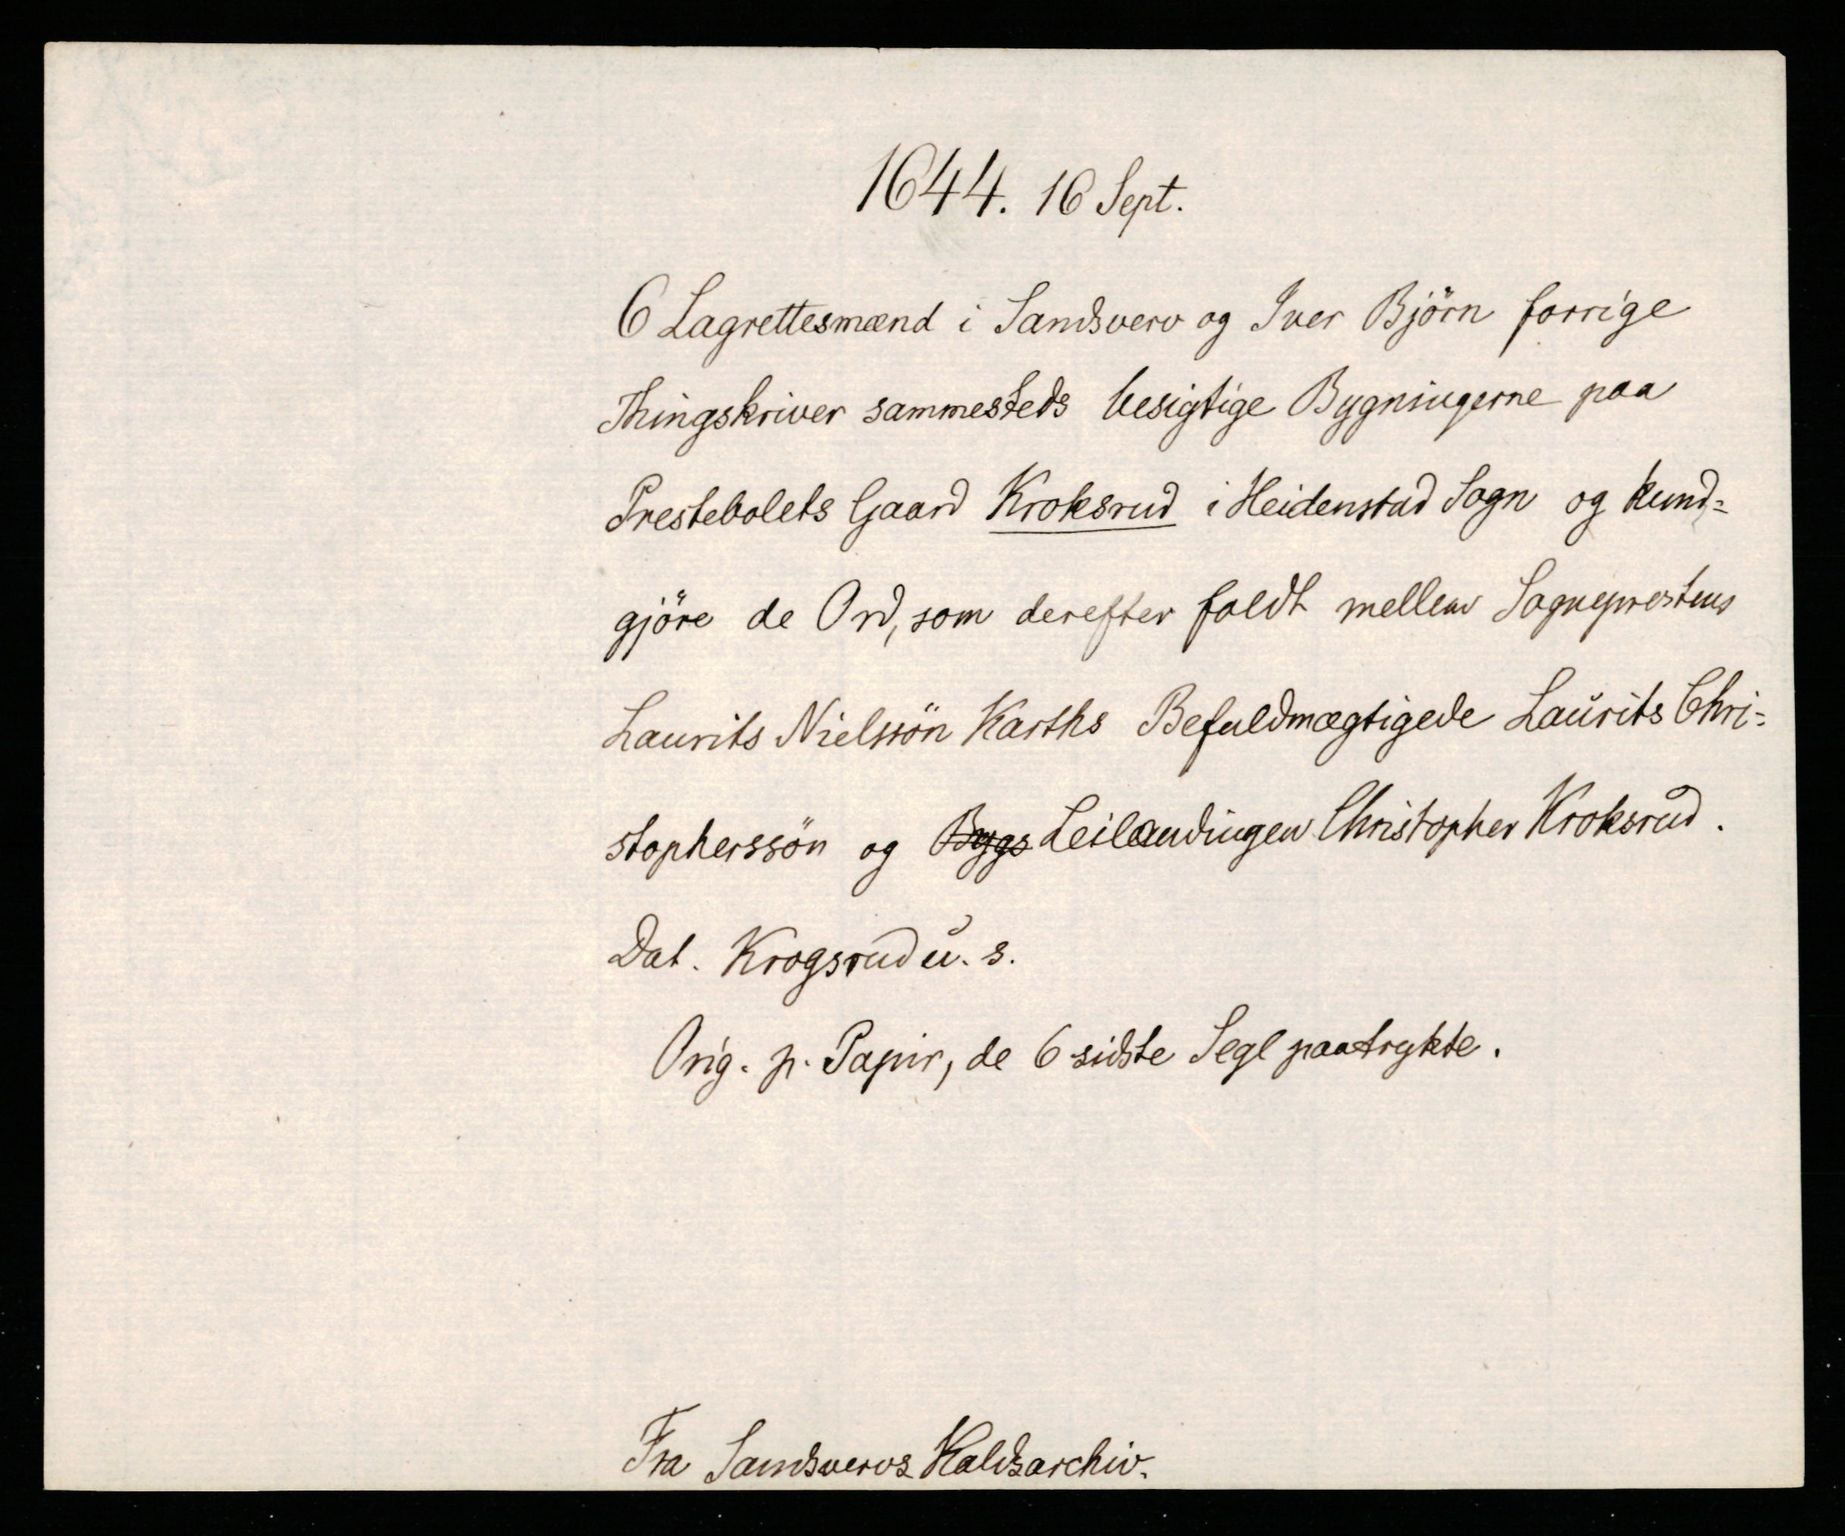 1644. 16 Sept.
6 Lagrettesmænd i Sandsverv og Iver Björn forrige
Thingskriver sammesteds besigtige Bygningerne paa
Prestebolets Gaard Kroksrud i Heidenstad Sogn og kund=
gjöre de Ord, som derefter faldt mellem Sogneprestens
Laurits Nielssön Karths Befuldmægtigede Laurits Chri=
stopherssön og Bygs Leilændingen Christopher Kroksrud.
Dat. Krogsrud u. s.
Orig. p. Papir, de 6 sidste Segl paatrykte.
Fra Sandsvervs Kaldsarchiv.